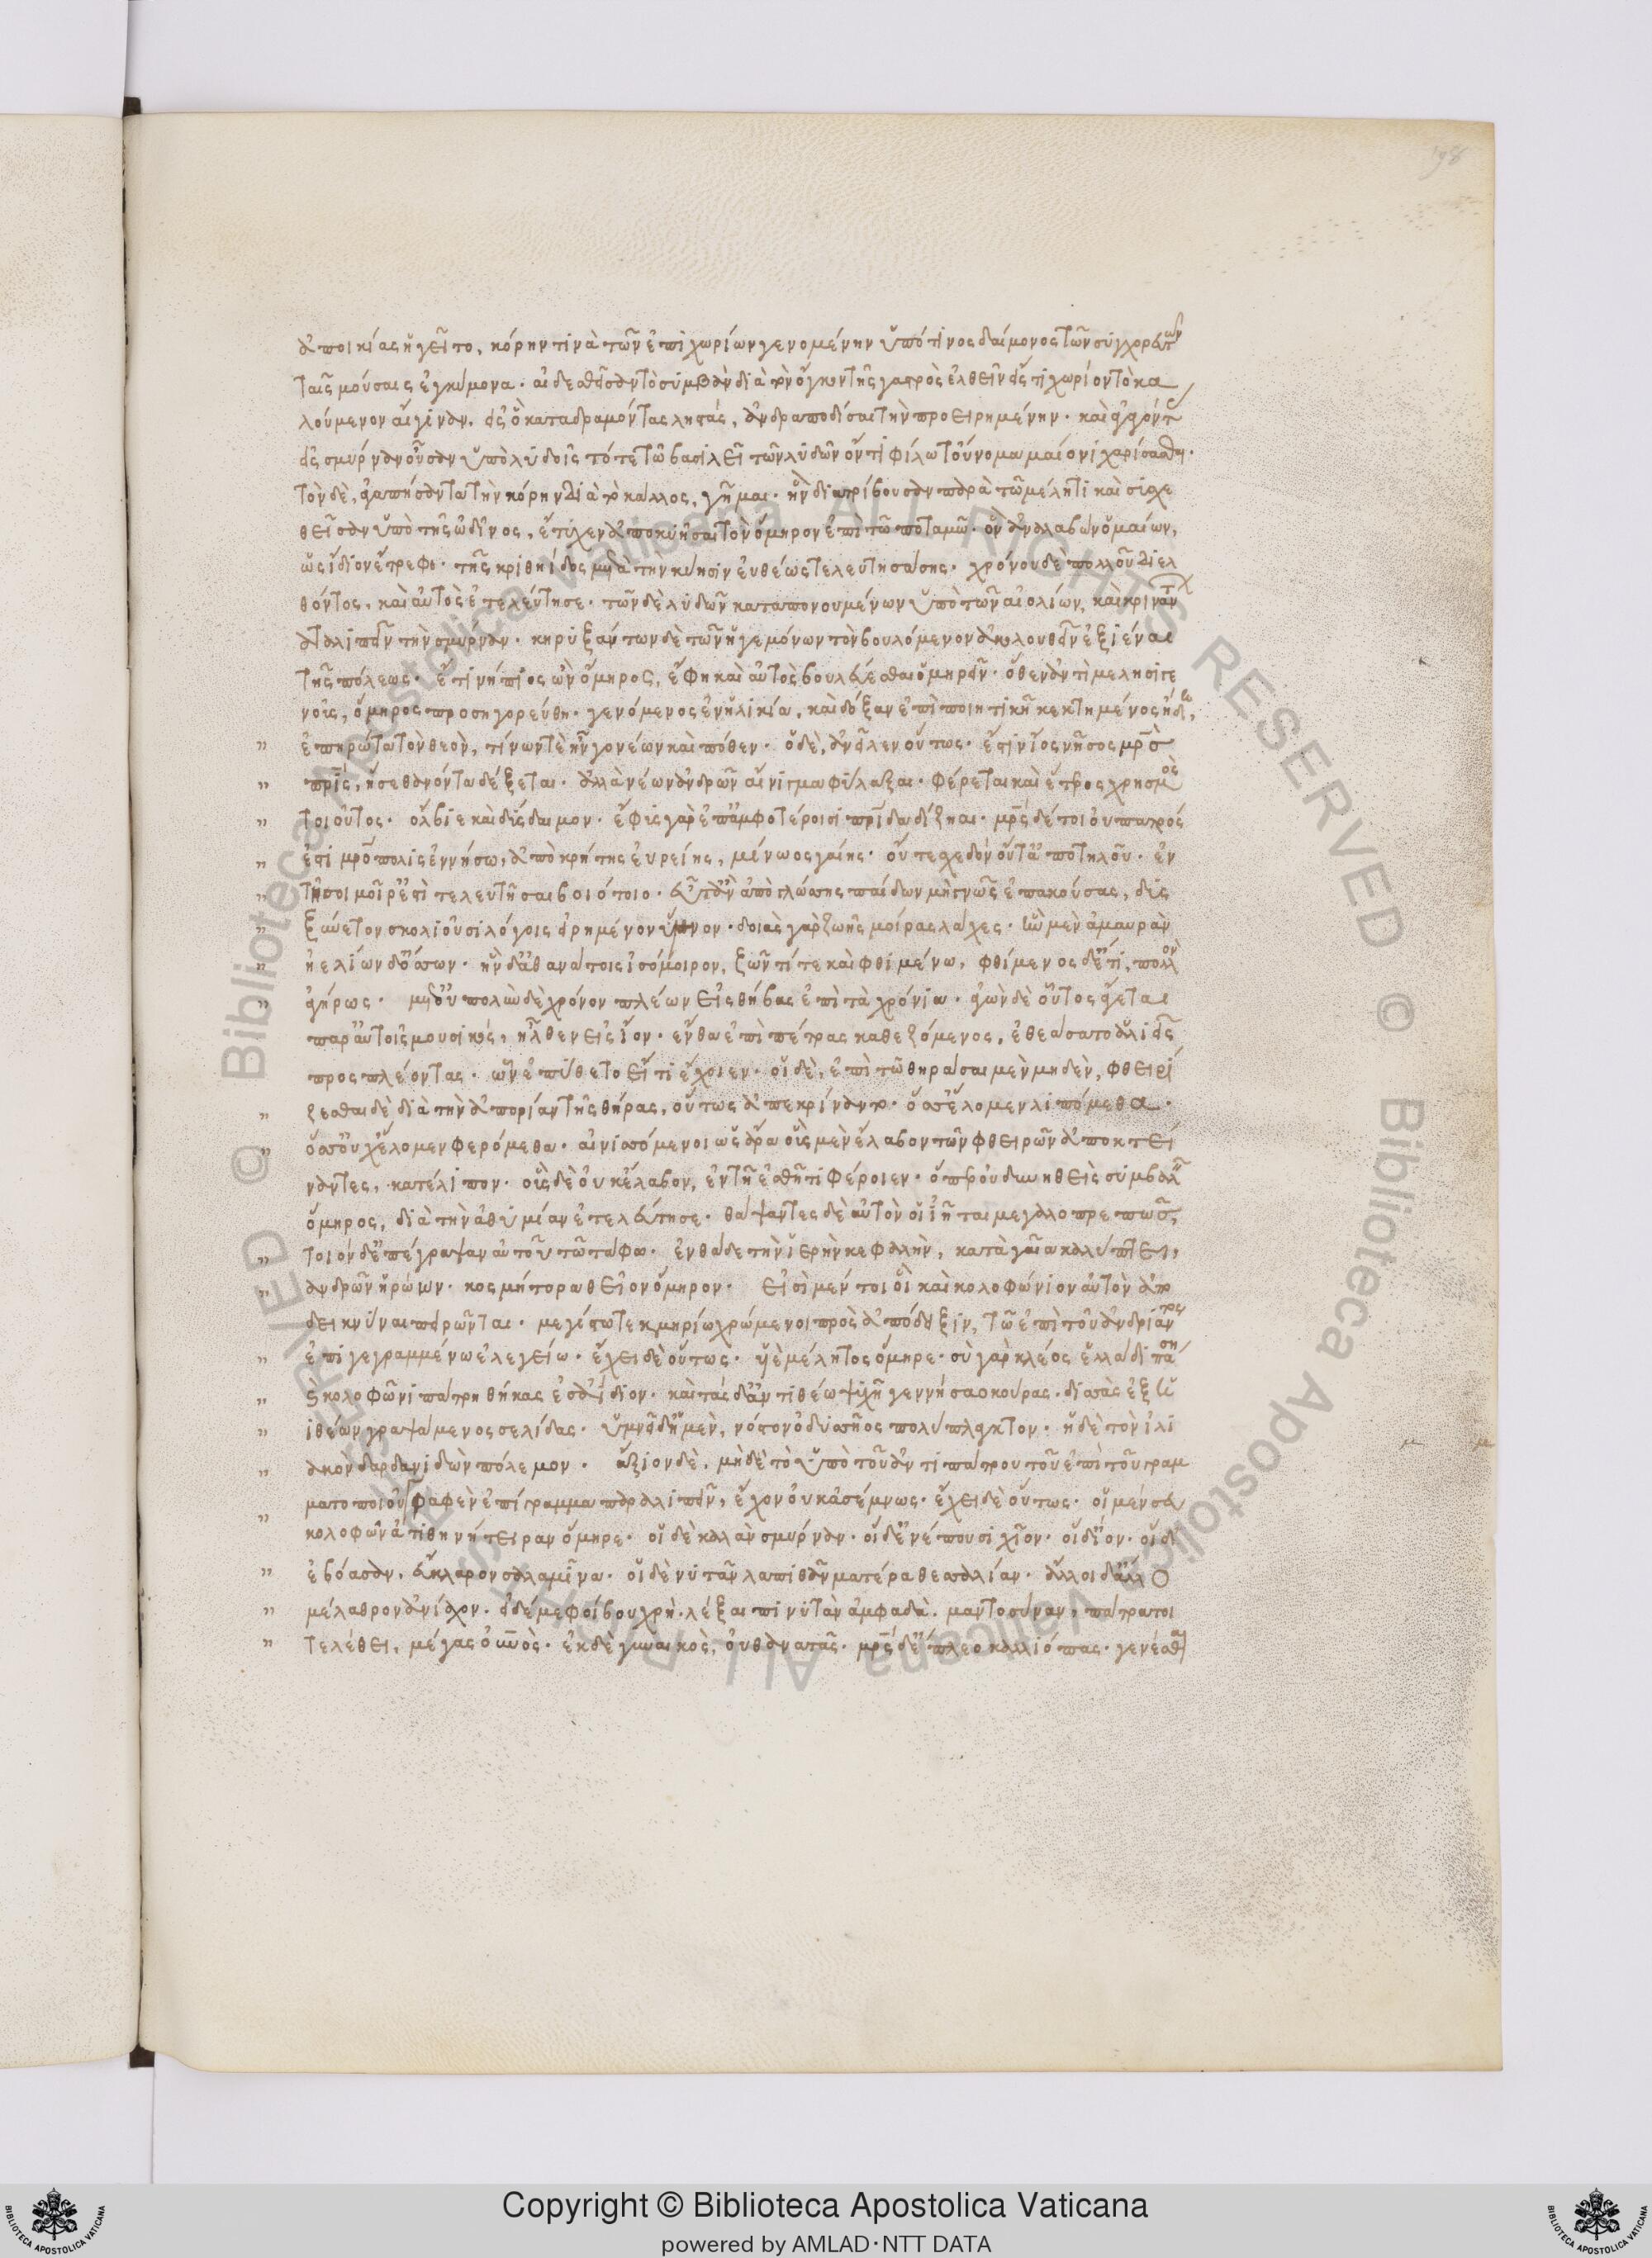 ἀποικίας ἡγεῖτο, κόρην τινὰ τῶν ἐπιχωρίων γενομένην ὑπό τινος δαίμονος τῶν συγχορευτῶν
ταῖς μούσαις ἐγκύμονα. αἰδεσθεῖσαν τὸ συμβὰν διὰ τὸν ὄγκον τῆς γαστρὸς ἐλθεῖν εἴς τι χωρίον τὸ κα
λούμενον αἴγιναν. εἰς ὃ καταδραμόντας ληστάς, ἀνδραποδίσαι τὴν προειρημένην. καὶ ἀγαγόντας
εἰς σμύρναν οὖσαν ὑπὸ λυδοῖς τότε τῷ βασιλεῖ τῶν λυδῶν ὄντι φίλω τοὔνομα μαίονι χαρίσασθαι.
τὸν δὲ, ἀγαπήσαντα τὴν κόρην διὰ τὸ κάλλος, γῆμαι. ἣν διατρίβουσαν παρὰ τῶ μέλητι καὶ συσχε
θεῖσαν ὑπὸ τῆς ὠδῖνος, ἔτυχεν ἀποκυῆσαι τὸν ὅμηρον ἐπὶ τῶ ποταμῶ. ὃν ἀναλαβὼν ὁ μαίων,
ὡς ἴδιον ἔτρεφε. τῆς κριθηίδος μετὰ τὴν κύησιν εὐθέως τελευτησάσης. χρόνου δὲ πολλοῦ διελ
θόντος, καὶ αὐτὸς ἐτελεύτησε. τῶν δὲ λυδῶν καταπονουμένων ὑπὸ τῶν αἰολίων, καὶ κρινάντων
καταλιπεῖν τὴν σμύρναν. κηρυξάντων δὲ τῶν ἡγεμόνων τὸν βουλόμενον ἀκολουθεῖν ἐξιέναι
τῆς πόλεως. ἔτι νήπιος ὢν ὅμηρος, ἔφη καὶ αὐτὸς βουλεύεσθαι ὁμηρεῖν. ὅθεν ἀντὶ μελησιγε
νοῦς, ὅμηρος προσηγορεύθη. γενόμενος ἐν ἡλικία, καὶ δόξαν ἐπὶ ποιητικῆ κεκτημένος ἤδη,
ἐπηρώτα τὸν θεὸν, τίνων τὲ ἦν γονέων καὶ πόθεν. ὁ δὲ, ἀνεῖλεν οὕτως. ἔστιν ἴος νῆσος μρὸς
πρίς, ἥ σε θανόντα δέξεται. ἀλλὰ νέων ἀνδρῶν αἴνιγμα φύλαξαι. φέρεται καὶ ἕτερος χρησμὸς
τοιοῦτος. ὄλβιε καὶ δύσδαιμον. ἔφυς γὰρ ἐπ' ἀμφοτέροισι πρίδα δίζηαι. μρς δέ τοι οὐ πατρός
ἐστί μρόπολις ἐν νήσω, ἀπὸ κρήτης εὐρείης, μίνωος γαίης. οὔτε σχεδόν οὔτ' ἀποτηλοῦ. ἐν
τῆ σοι μοῖρ' ἐστὶ τελευτῆσαι βιότοιο. εὖτ' ἂν ἀπὸ γλώσσης παίδων μὴ γνῶς ἐπακούσας, δυς
ξύνετον σκολιοῖσι λόγοις εἰρημένον ὕμνον. δοιὰς γὰρ ζωῆς μοίρας λάχες. τὴν μὲν ἀμαυρὰν
ἠελίων δοσσῶν. ἣν δ' ἀθανάτοις ἰσόμοιρον, ζῶντί τε καὶ φθιμένω, φθίμενος δ' ἔτι, πολλὸν
ἀγήρως. μετ' οὐ πολὺ δὲ χρόνον πλέων εἰς θήβας ἐπὶ τὰ χρόνια. ἀγὼν δὲ οὗτος ἄγεται
παρ' αὐτοῖς μουσικός, ἦλθεν εἰς ἴον. ἔνθα ἐπὶ πέτρας καθεζόμενος, ἐθεάσατο ἁλιεῖς
προσπλέοντας. ὧν ἐπύθετο εἴ τι ἔχοιεν. οἱ δὲ, ἐπὶ τῶ θηράσαι μὲν μηδὲν, φθειρί
ζεσθαι δὲ διὰ τὴν ἀπορίαν τῆς θήρας, οὕτως ἀπεκρίναντο. ὅσσ' ἕλομεν λιπόμεθα.
ὅσσ' οὐχ ἕλομεν φερόμεθα. αἰνισσόμενοι ὡς ἄρα οὓς μὲν ἔλαβον τῶν φθειρῶν ἀποκτεί
ναντες, κατέλιπον. οὓς δὲ οὐκ ἔλαβον, ἐν τῆ ἐσθῆτι φέροιεν. ὅπερ οὐ δυνηθεὶς συμβαλεῖν
ὅμηρος, διὰ τὴν ἀθυμίαν ἐτελεύτησε. θάψαντες δὲ αὐτὸν οἱ ἰῆται μεγαλοπρεπῶς,
τοιόνδ' ἐπέγραψαν αὐτοῦ τῶ τάφω. ἐνθάδε τὴν ἱερὴν κεφαλὴν, κατὰ γαῖα καλύπτει,
ἀνδρῶν ἡρώων. κοσμήτορα θεῖον ὅμηρον. εἰσὶ μέν τοι οἳ καὶ κολοφώνιον αὐτὸν ἀπο
δεικνύναι πειρῶνται. μεγίστω τεκμηρίω χρώμενοι πρὸς ἀπόδειξιν, τῶ ἐπὶ τοῦ ἀνδριάντος
ἐπιγεγραμμένω ἐλεγείω. ἔχει δὲ οὕτως. υἱὲ μέλητος ὅμηρε. σὺ γὰρ κλέος ἑλλάδι πάση
ς κολοφῶνι πάτρη θήκας ἐσαΐδιον. καὶ τάς δ' ἀντιθέω ψυχῆ γεννήσαο κούρας. δισσὰς ἐξ
ἰθέων γραψάμενος σελίδας. ὑμνεῖ δ' ἡ μὲν, νόστον ὀδυσσῆος πολύπλαγκτον. ἡ δὲ τὸν ἰλι
ακὸν δαρδανιδῶν πόλεμον. ἄξιον δὲ, μηδὲ τὸ ὑπὸ τοῦ ἀντιπάτρου τοῦ ἐπὶ τοῦ γραμ
ματοποιοῦ γραφὲν ἐπίγραμμα παραλιπεῖν, ἔχον οὐκ ἀσέμνως. ἔχει δὲ οὕτως. οἱ μέν σευ
κολοφῶνα τιθηνήτειραν ὅμηρε. οἱ δὲ καλὰν σμύρναν. οἱ δ' ἐνέπουσι χῖον. οἱ δ' ἴον. οἱ δ'
ἐβόασαν, εὔκλαρον σαλαμῖνα. οἱ δέ νυ τᾶν λαπιθᾶν ματέρα θεσσαλίαν. ἄλλοι δ' ἄλλο
μέλαθρον ἀνίαχον. εἰ δέ με φοίβου χρὴ λέξαι πινυτὰν ἀμφαδὰ μαντοσύναν, πάτρα τοι
τελέθει, μέγας οὐνὸς. ἐκ δὲ γυναικὸς, οὐ θνατᾶς. μρς δ' ἔπλεο καλλιόπας. γενέσθαι